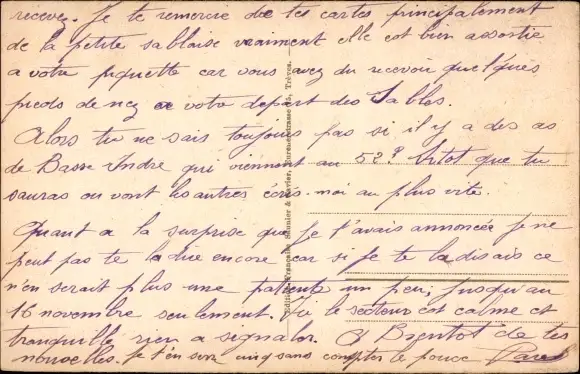 recevez. Je te remercie de tes cartes principalement
de la petite sablaise vraiment elle est bien assortie
a votre piquette car vous avez du recevoir quelques
pieds de nez a votre depart des Sables.
Alors tu ne sais toujours pas si il y a des as
de Basse Indre qui viennent au 52e. Sitot que tu
sauras ou vont les autres écris-moi au plus vite.
Quant a la surprise que je t'avais annoncée je ne
peut pas te la dire encore car si je te la disais ce
n'en serait plus une patiente un peu, jusqu'au
16 novembre seulement. Ici le secteur est calme et
tranquille rien a signaler. A Bientot de tes
nouvelles. Je t'en serre cinq sans compter le pouce
Edition Française Daunier &
Trèves.